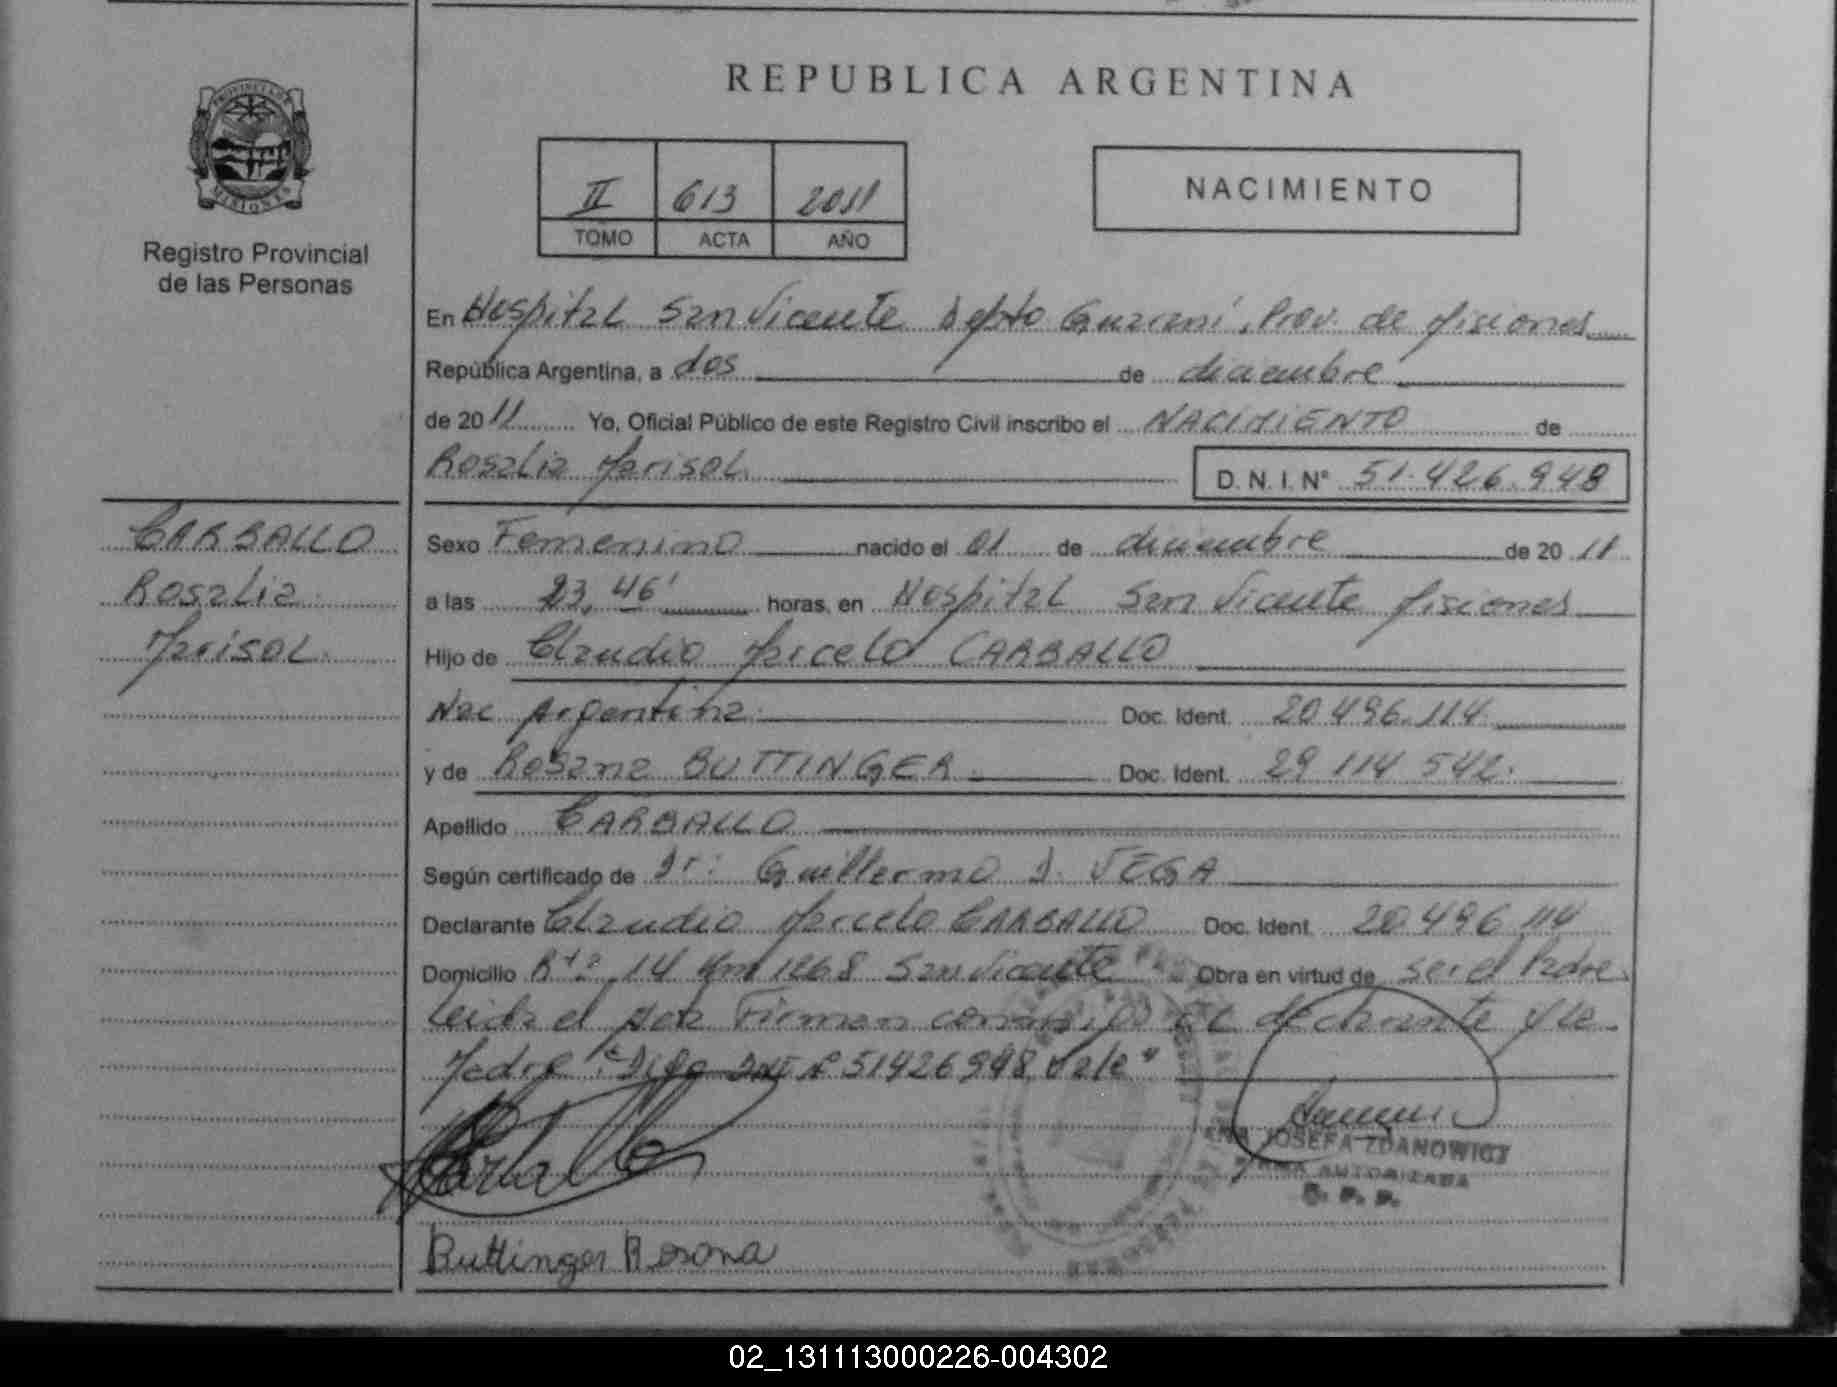 REPUBLICA ARGENTINA
PROVINCIA DE
MISIONES
Registro Provincial
de las Personas
II 613 2011
TOMO ACTA AÑO
NACIMIENTO
En Hospital San Vicente Depto Guaraní, Prov. de Misiones
República Argentina, a dos de diciembre
de 2011 Yo, Oficial Público de este Registro Civil inscribo el NACIMIENTO de
Rosalia Marisol
D. N. I. N° 51.426.948
CARBALLO
Rosalia
Marisol
Sexo Femenino nacido el 01 de diciembre de 2011
a las 23,46' horas, en Hospital San Vicente Misiones
Hijo de Claudio Marcelo CARBALLO
Nac Argentina Doc. Ident. 20.496.114
y de Rosana BUTTINGER Doc. Ident. 29 114 542.
Apellido CARBALLO
Según certificado de Dr: Guillermo D. VEGA
Declarante Claudio Marcelo CARBALLO Doc. Ident. 20 496 114
Domicilio Rta 14 Km 1268 San Vicente Obra en virtud de ser el Padre
Leida el Acta Firman conmigo el declarante y la
Madre "Digo DNI N° 51426948 Vale"
ANA JOSEFA ZDANOWICZ
FIRMA AUTORIZADA
R. P. P.
Buttinger Rosana
02_131113000226-004302